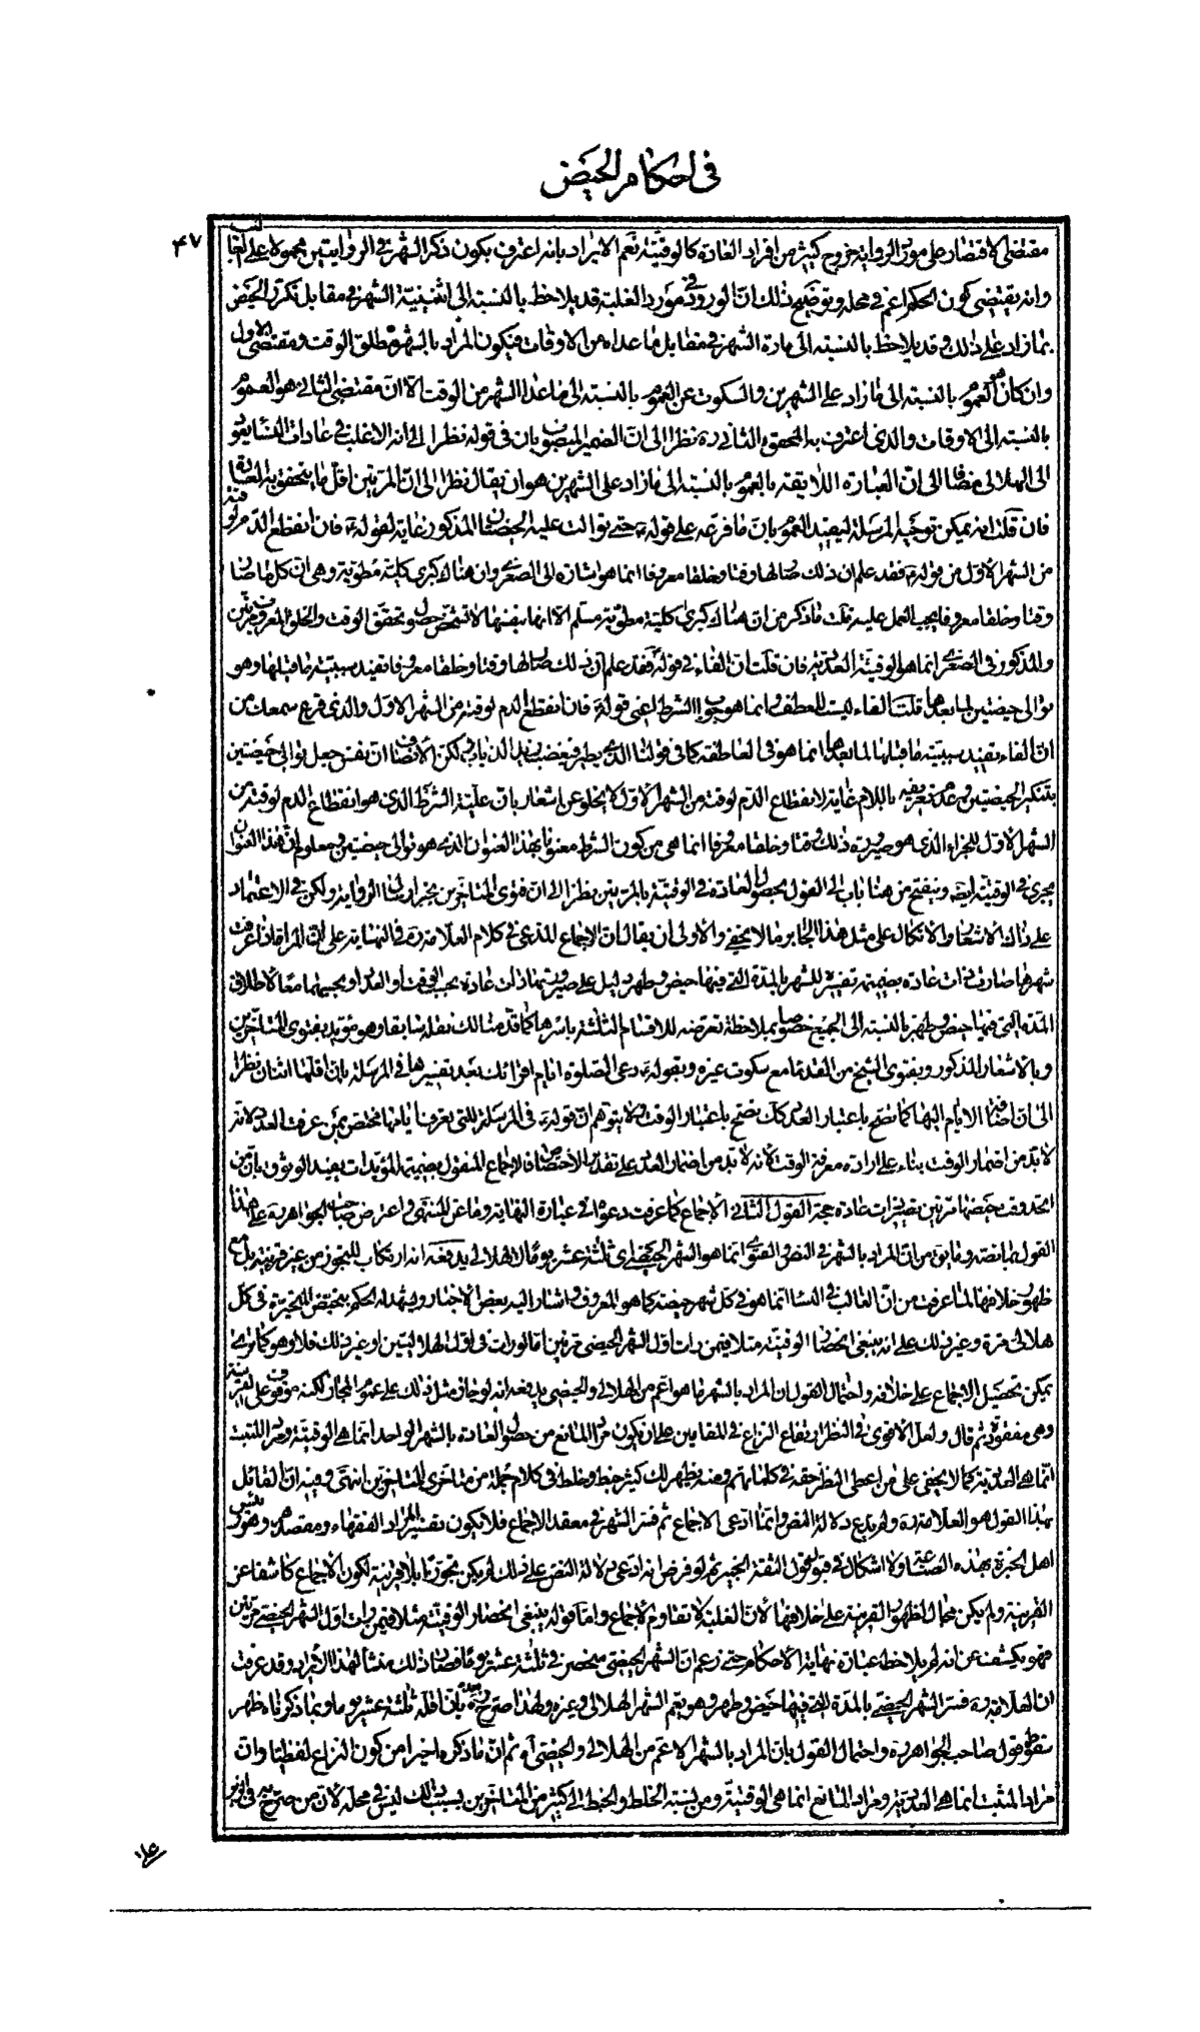 في احكام الحيض
۴۷
مقتضى الاقتصار على مورد الرواية خروج كثير من افراد العادة كالوقتية نعم الايراد بانه اعترف بكون ذكر الشهر في الروايتين محمولا على الغالب
وانه يقتضي كون الحكم اعم في محله وتوضيح ذلك ان الورود في مورد الغلبة قد يلاحظ بالنسبة الى اثنينية الشهر في مقابل تكرر الحيض
بما زاد على ذلك وقد يلاحظ بالنسبة الى مادة الشهر في مقابل ما عداه من الاوقات فيكون المراد بالشهر مطلق الوقت ومقتضى الاول
وان كان هو العموم بالنسبة الى ما زاد على الشهرين والسكوت عن العموم بالنسبة الى ما عدا الشهر من الوقت الا ان مقتضى الثاني هو العموم
بالنسبة الى الاوقات والذي اعترف به المحقق الثاني ره نظرا الى ان الضمير المنصوب بان في قوله نظرا الى انه الاغلب في عادات النساء يعود
الى الهلالي مضافا الى ان العبارة اللايقة بالعموم بالنسبة الى ما زاد على الشهرين هو ان يقال نظرا الى ان المرتين اقل ما يتحقق به العادة
فان قلت انه يمكن توجيه المرسلة ليفيد العموم بان ما فرعه على قوله حتى توالت عليه الحيضتان المذكور غاية لقوله فان انقطع الدم لوقته
من الشهر الاول من قوله فقد علم ان ذلك صار لها وقتا وخلقا معروفا انما هو اشارة الى الصغرى وان هناك كبرى كلية مطوية وهي ان كل ما صار
وقتا وخلقا معروفا يجب العمل عليه قلت ما ذكر من ان هناك كبرى كلية مطوية مسلم الا انها بنفسها لا تشخص حصول وتحقق الوقت والخلق المعروف بمرتين
والمذكور في الصغرى انما هو الوقتية العددية فان قلت ان الفاء في قوله فقد علم ان ذلك صار لها وقتا وخلقا معروفا تفيد سببية ما قبلها وهو
توالي حيضتين لما بعدها قلت الفاء ليست للعطف وانما هو جواب الشرط اعني قوله فان انقطع الدم لوقته من الشهر الاول والذي قرع سمعك من
ان الفاء يفيد سببية ما قبلها لما بعدها انما هو في العاطفة كما في قولنا الذي يطير فيغضب زيد الذباب لكن الانصاف ان نفس جعل توالي حيضتين
بتنكير الحيضتين وعدم تعريفه باللام غاية لانقطاع الدم لوقته من الشهر الاول لا يخلو عن اشعار بان علية الشرط الذي هو انقطاع الدم لوقته من
الشهر الاول للجزاء الذي هو صيرورة ذلك وقتا وخلقا معروفا انما هي من كون الشرط معنونا بهذا العنوان الذي هو توالي حيضتين ومعلوم ان هذا العنوان
يجري في الوقتية ايضا وينفتح من هنا باب الى القول بحصول العادة في الوقتية بالمرتين نظرا الى ان فتوى المتاخرين يجبر الرواية ولكن في الاعتماد
على ذاك الاشعار والاتكال على مثل هذا الجابر ما لا يخفى والاولى ان يقال ان الاجماع المدعى في كلام العلامة ره في النهاية على ان المراة اذا عرفت
شهرها صارت ذات عادة بضميمة تفسيره للشهر بالمدة التي فيها حيض وطهر دليل على صيرورتها ذات عادة بحسب الوقت او العدد او بحسبهما معا لاطلاق
المدة التي فيها حيض وطهر بالنسبة الى الجميع خصوصا بملاحظة تعرضه للاقسام الثلثة باسرها كما قدمنا لك نقله سابقا وهو مؤيد بفتوى المتاخرين
وبالاشعار المذكور وبفتوى الشيخ من القدماء مع سكوت غيره وبقوله دعي الصلوة ايام اقرائك بعد تفسيرها في المرسلة بان اقلها اثنان نظرا
الى ان اضافة الايام اليها كما تصح باعتبار العدد كك تصح باعتبار الوقت ولا يتوهم ان قوله في المرسلة للتي تعرف ايامها مختص بمن عرفت العدد لانه
لا بد من اضمار الوقت بناء على ارادة معرفة الوقت لانه لا بد من اضمار العدد على تقدير الاختصاص فالاجماع المنقول بضميمة المؤيدات يفيد الوثوق بان من
اتحد وقت حيضها مرتين تصير ذات عادة حجة القول الثاني الاجماع كما عرفت دعواه في عبارة النهاية وما عن المنتهى واعترض صاحب الجواهر ره على هذا
القول بما نصه وما يق من ان المراد بالشهر في النص والفتوى انما هو الشهر الحيضي اي ثلثة عشر يوما لا الهلالي يدفعه انه ارتكاب للتجوز من غير قرينة بل مع
ظهور خلافها لما عرفت من ان الغالب في النساء انما هو في كل شهر حيضة كما هو المعروف واشار اليه بعض الاخبار ويشهد له الحكم بتحيض المتحيرة في كل
هلالي مرة وغير ذلك على انه ينبغي انحصار الوقتية مثلا فيمن رات اول الشهر الحيضي مرتين اما لو رات في اول الهلاليين او غير ذلك فلا وهو كما ترى
يمكن تحصيل الاجماع على خلافه واحتمال القول بان المراد بالشهر ما هو اعم من الهلالي والحيضي يدفعه انه لو جاز مثل ذلك على عموم المجاز لكنه موقوف على القرينة
وهي مفقودة ثم قال ولعل الاقوى في النظر ارتفاع النزاع في المقامين على ان يكون مراد المانع من حصول العادة بالشهر الواحد انما هي الوقتية ومراد المثبت
انما هي العددية كما لا يخفى على من اعطى النظر حقه في كلماتهم ومنه يظهر لك كثير خبط وخلط في كلام جملة من متاخري المتاخرين انتهى وفيه ان القائل
بهذا القول هو العلامة ره ولم يدع دلالة النص وانما ادعى الاجماع ثم فسر الشهر في معقد الاجماع فلا يكون تفسير المراد الفقهاء ومقصدهم وهو رئيس
اهل الخبرة بهذه الصناعة ولا اشكال في قبول قول الثقة الخبير ثم لو فرض انه ادعى دلالة النص على ذلك لم يكن تجوزا بلا قرينة لكون الاجماع كاشفا عن
القرينة ولم يكن مجال لظهور القرينة على خلافها لان الغلبة لا تقاوم الاجماع واما قوله ينبغي انحصار الوقتية مثلا فيمن رات اول الشهر الحيضي مرتين
فهو يكشف عن انه لم يلاحظ عبارة نهاية الاحكام حتى زعم ان الشهر الحيضي منحصر في ثلثة عشر يوما فصار ذلك منشأ لهذا الايراد وقد عرفت
ان العلامة ره فسر الشهر الحيضي بالمدة التي فيها حيض وطهر وهو يعم الشهر الهلالي وغيره ولهذا صرح بان اقله ثلثة عشر يوما وبما ذكرناه ظهر
سقوط قول صاحب الجواهر ره واحتمال القول بان المراد بالشهر الاعم من الهلالي والحيضي اه ثم ان ما ذكره اخيرا من كون النزاع لفظيا وان
مراد المثبت انما هي العددية ومراد المانع انما هي الوقتية ومن نسبة الخلط والخبط الى كثير من المتاخرين بسبب ذلك ليس في محله لان من صرح به في